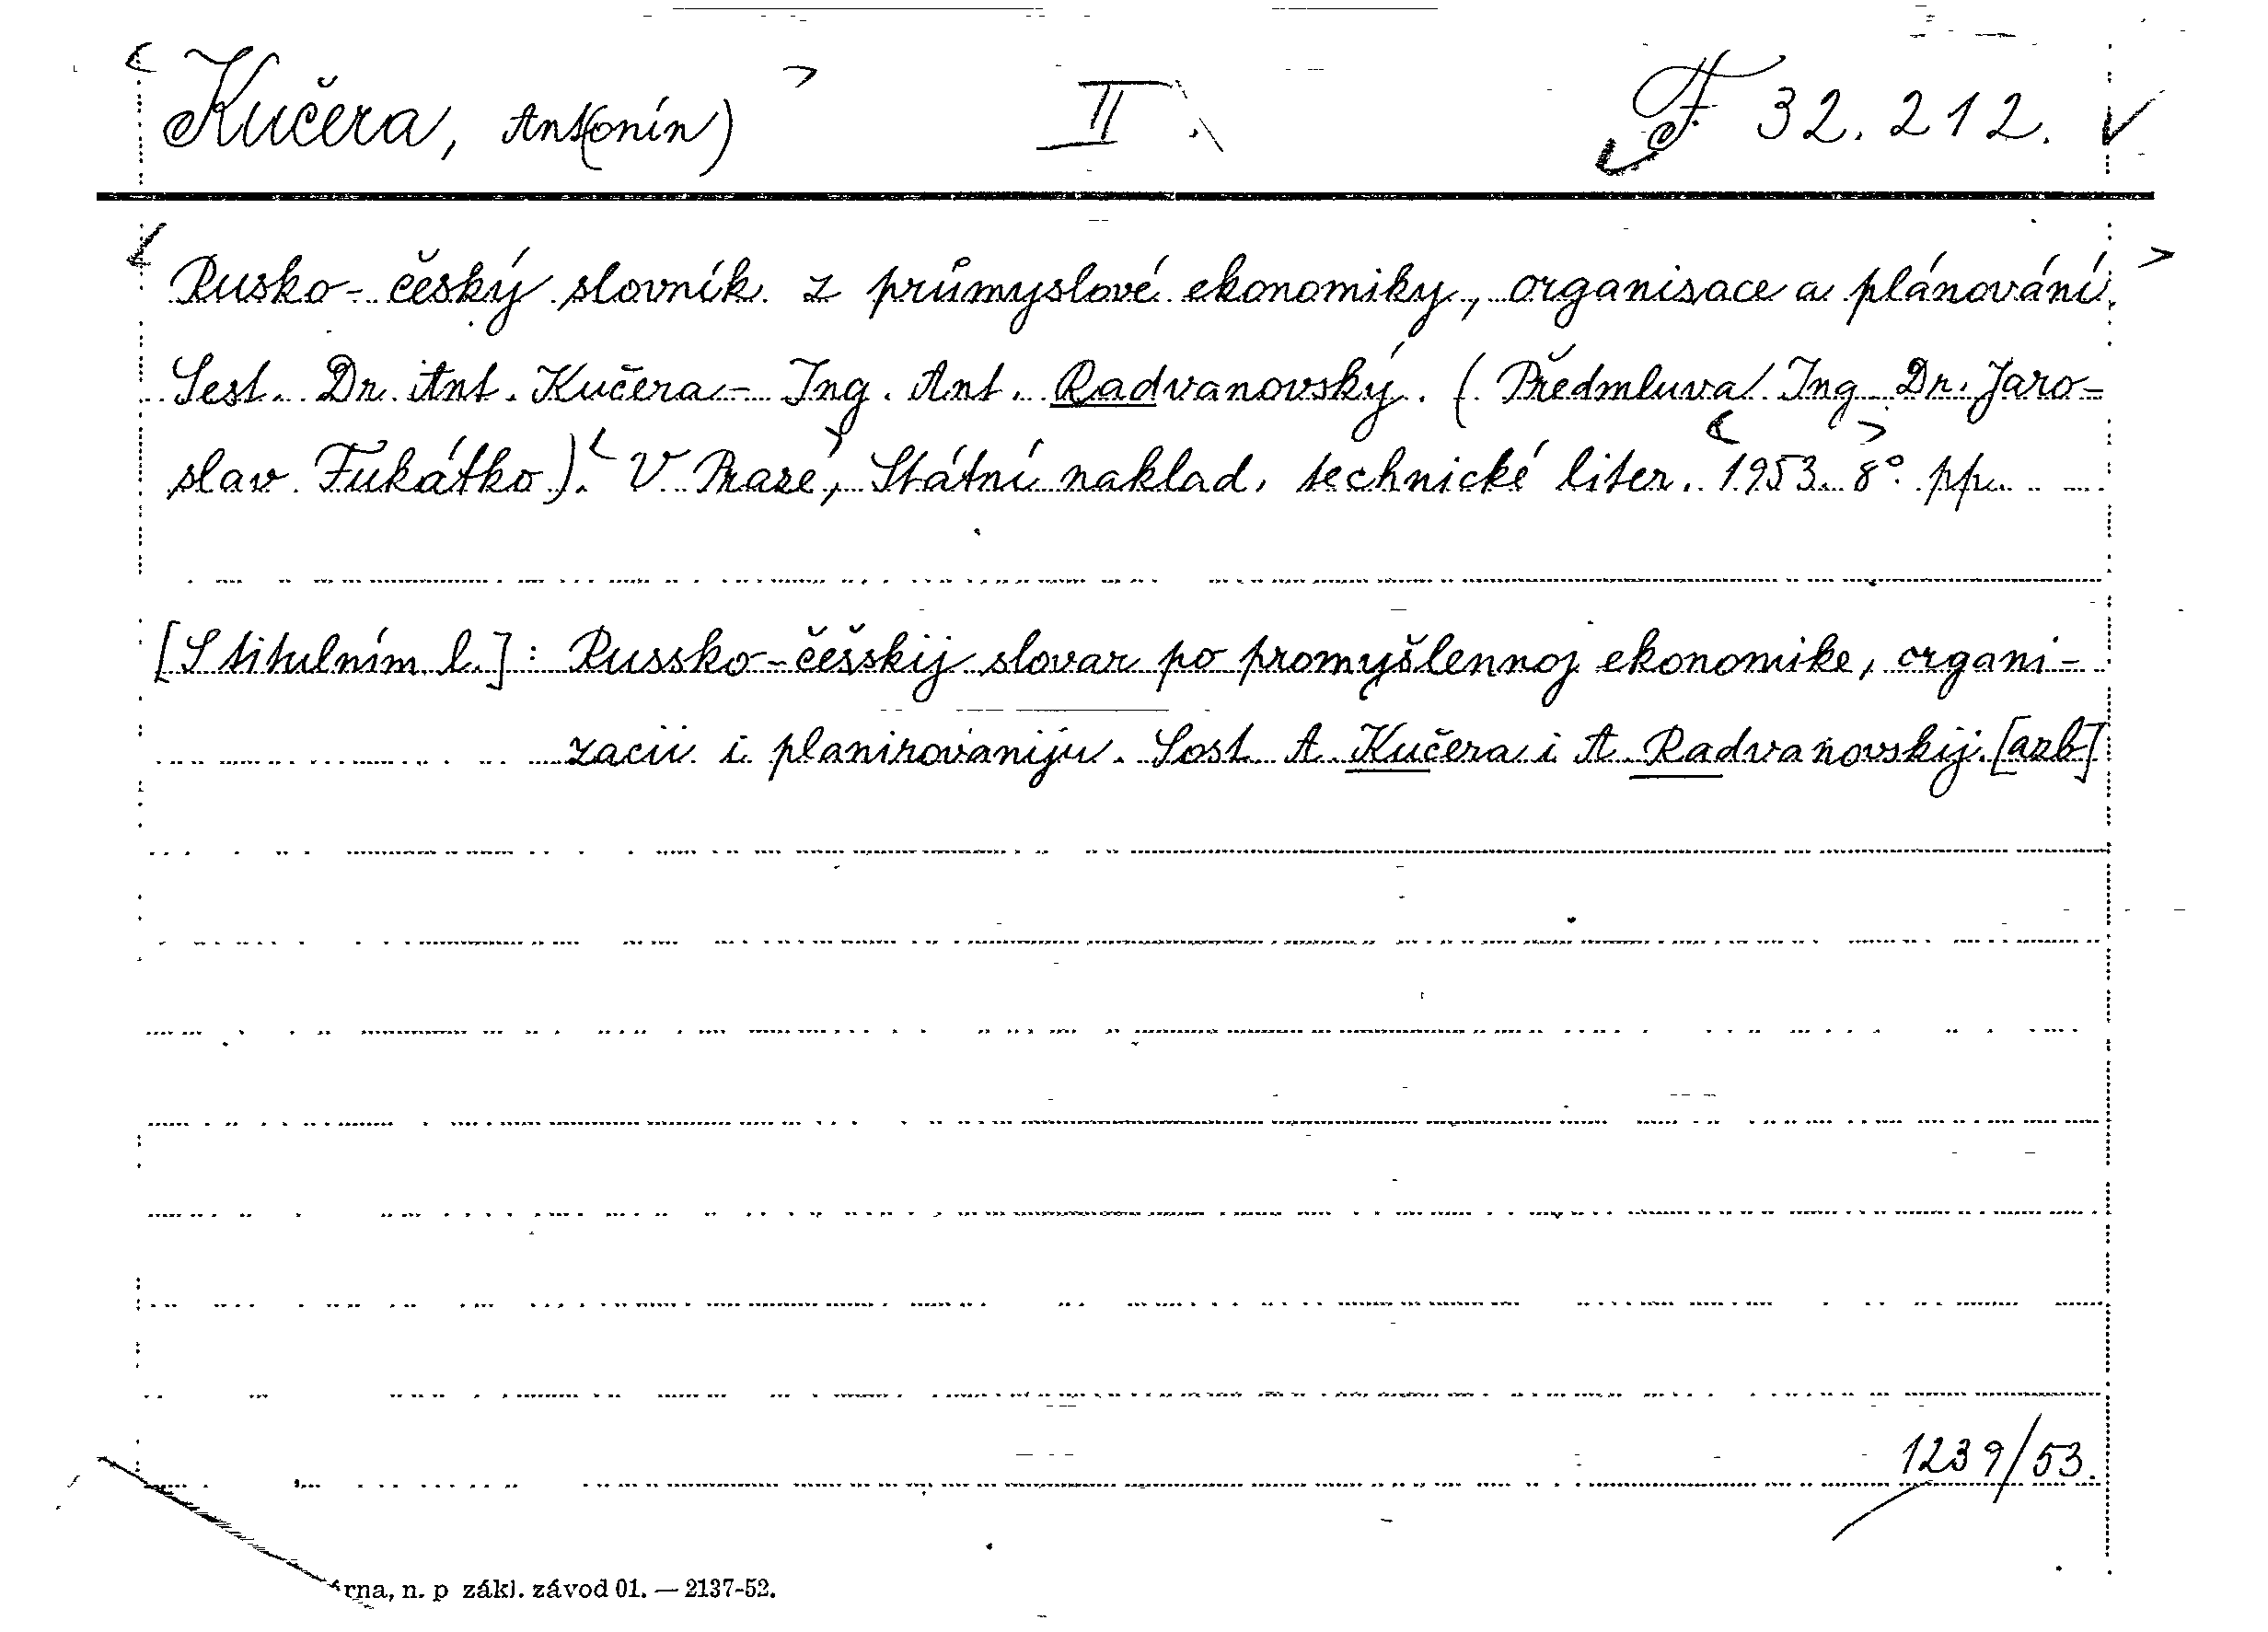 Kučera, Ant(onín) II F 32.212.
Rusko-český slovník z průmyslové ekonomiky, organisace a plánování.
Sest. Dr. Ant. Kučera - Ing. Ant. Radvanovský. (Předmluva Ing. Dr. Jaro-
slav Fukátko). V Praze, Státní naklad. technické liter. 1953. 8°. pp.
[S titulním l.]: Russko-češskij slovar po promyšlennoj ekonomike, organi-
zacii i planirovaniju. Sost. A. Kučera i A. Radvanovskij. [azb]
1239/53.
árna, n. p zákl. závod 01. — 2137-52.